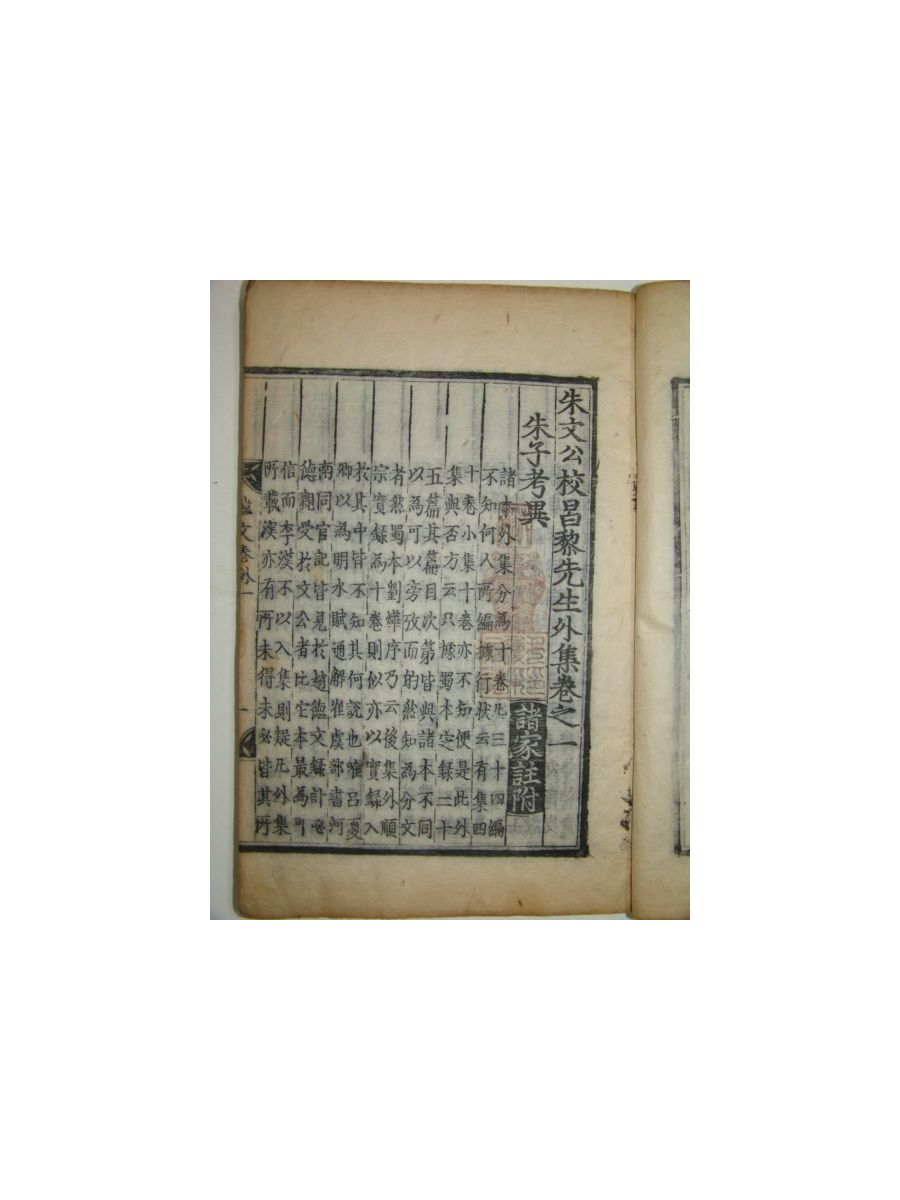 朱文公校昌黎先生外集卷之一
朱子考異
諸家註附
諸本外集分為十卷凡三十四編
不知何人所編據行狀云有集四
十卷小集十卷亦不知便是此外
集與否方云只據蜀本定錄二十
五篇其篇目次第皆與諸本不同
以為可以旁攷而的然知為分文
者然蜀本劉燁序乃云後集外順
宗實錄為十卷則似亦以實錄入
於其中皆不知其何說也唯呂夏
卿以為明水賦通解崔虞部書河
南同官記皆見於趙德文錄計必
德親受於文公者比它本最為可
信而李漢不以入集則疑凡外集
所載漢亦有所未得未必皆其所
韓文卷外一
一